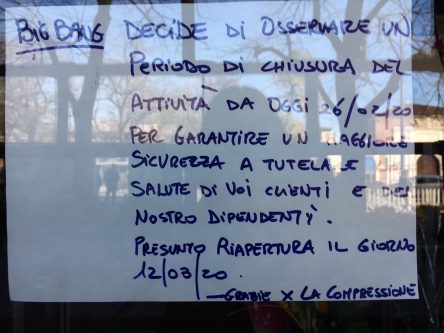 BIG BANG DECIDE DI OSSERVARE UN
PERIODO DI CHIUSURA DEL
ATTIVITÀ DA OGGI 26/02/20
PER GARANTIRE UN MAGGIORE
SICUREZZA A TUTELA E
SALUTE DI VOI CLIENTI E DEI
NOSTRO DIPENDENTI.
PRESUNTO RIAPERTURA IL GIORNO
12/03/20.
—GRAZIE X LA COMPRESSIONE